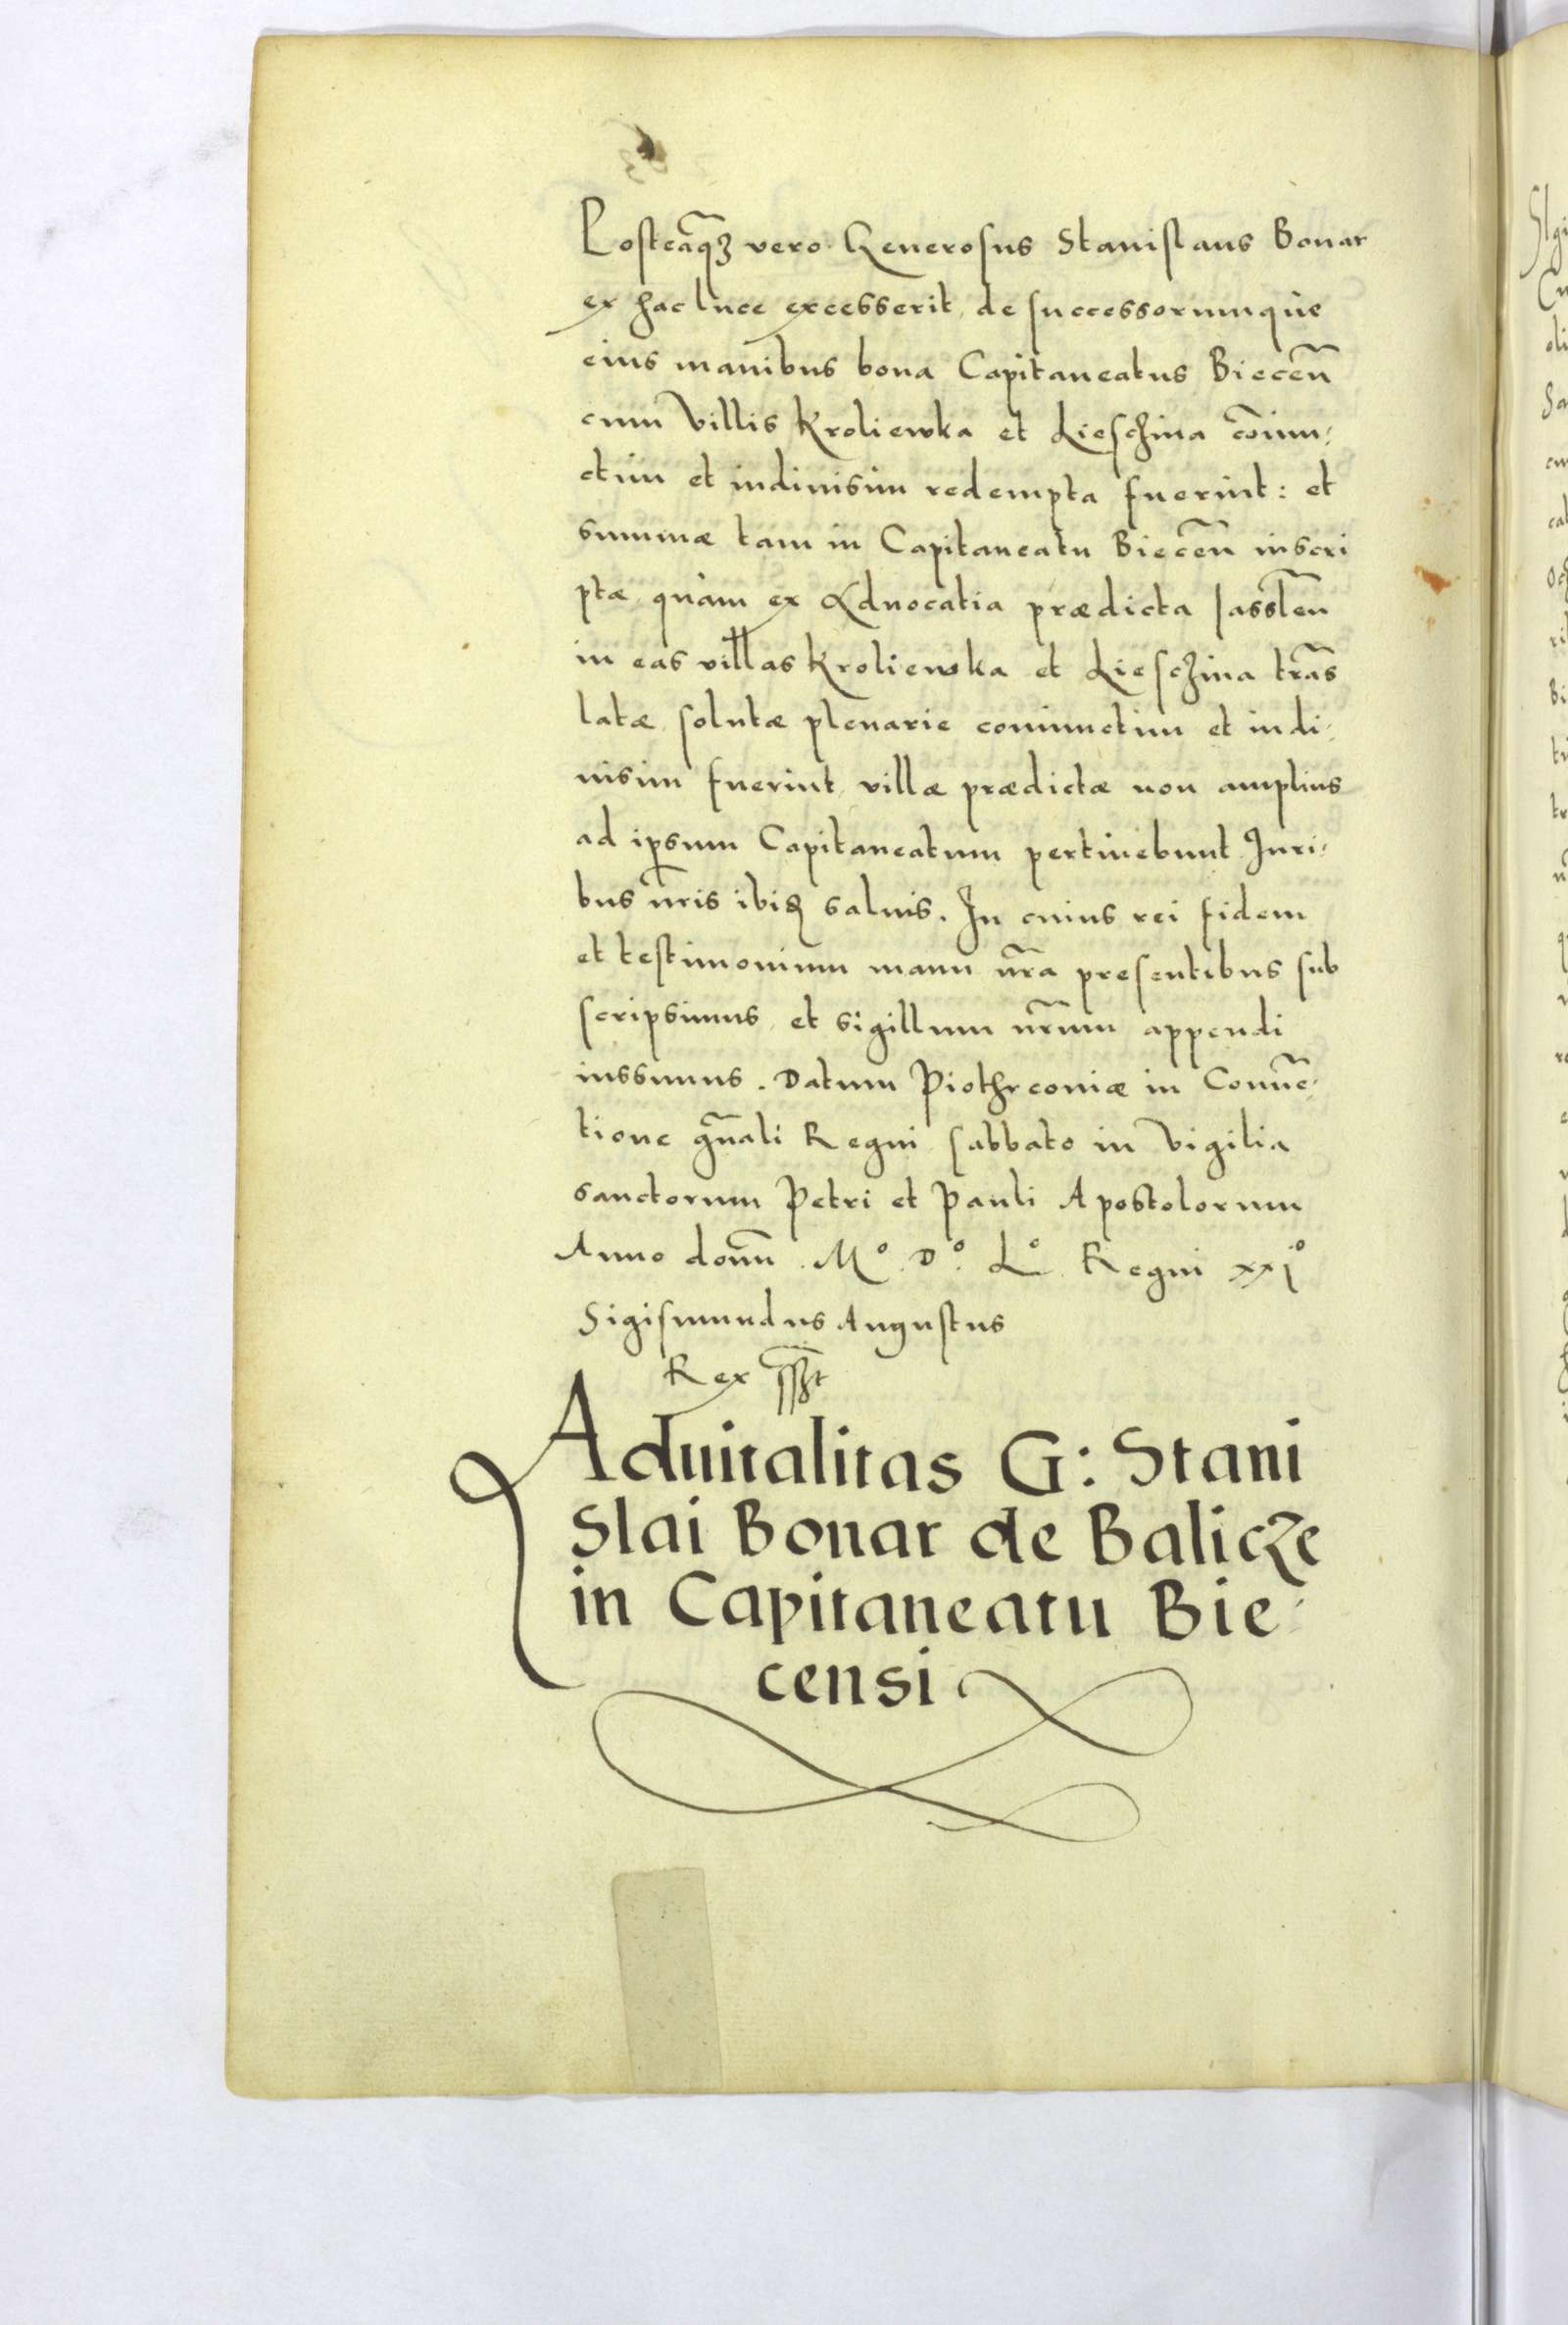 Posteaq̃ȝ vero Generosus Stanislaus Bonar
ex hac luce excesserit, de successorumque
eius manibus bona Capitaneatus Biecen̄
cum Villis Kroliewka et Lieschina cōiun:
ctim et indiuisim redempta fuerint: et
summæ tam in Capitaneatu Biecen̄ inscri
ptæ quàm ex Aduocatia prædicta Jasslen̄
in eas villas Kroliewka et Lieschina trãs
latæ, solutæ plenarie coniunctim et indi:
uisim fuerint, villæ prædictæ non amplius
ad ipsum Capitaneatum pertinebunt Juri:
bus nr̄is ibiꝗ saluis. In cuius rei fidem
et testimonium manu nr̄a presentibus sub
scripsimus, et sigillum nr̄um appendi
iussimus. Datum Piothrconiæ in Conuẽ:
tione gn̄ali Regni sabbato in Vigilia
sanctorum Petri et Pauli Apostolorum
Anno domn̄. Mº. Dº. Lº Regni xxjº
Sigismundus Augustus
Rex sszt
Aduitalitas G: Stani
Slai Bonar de Balicze
in Capitaneatu Bie:
censi